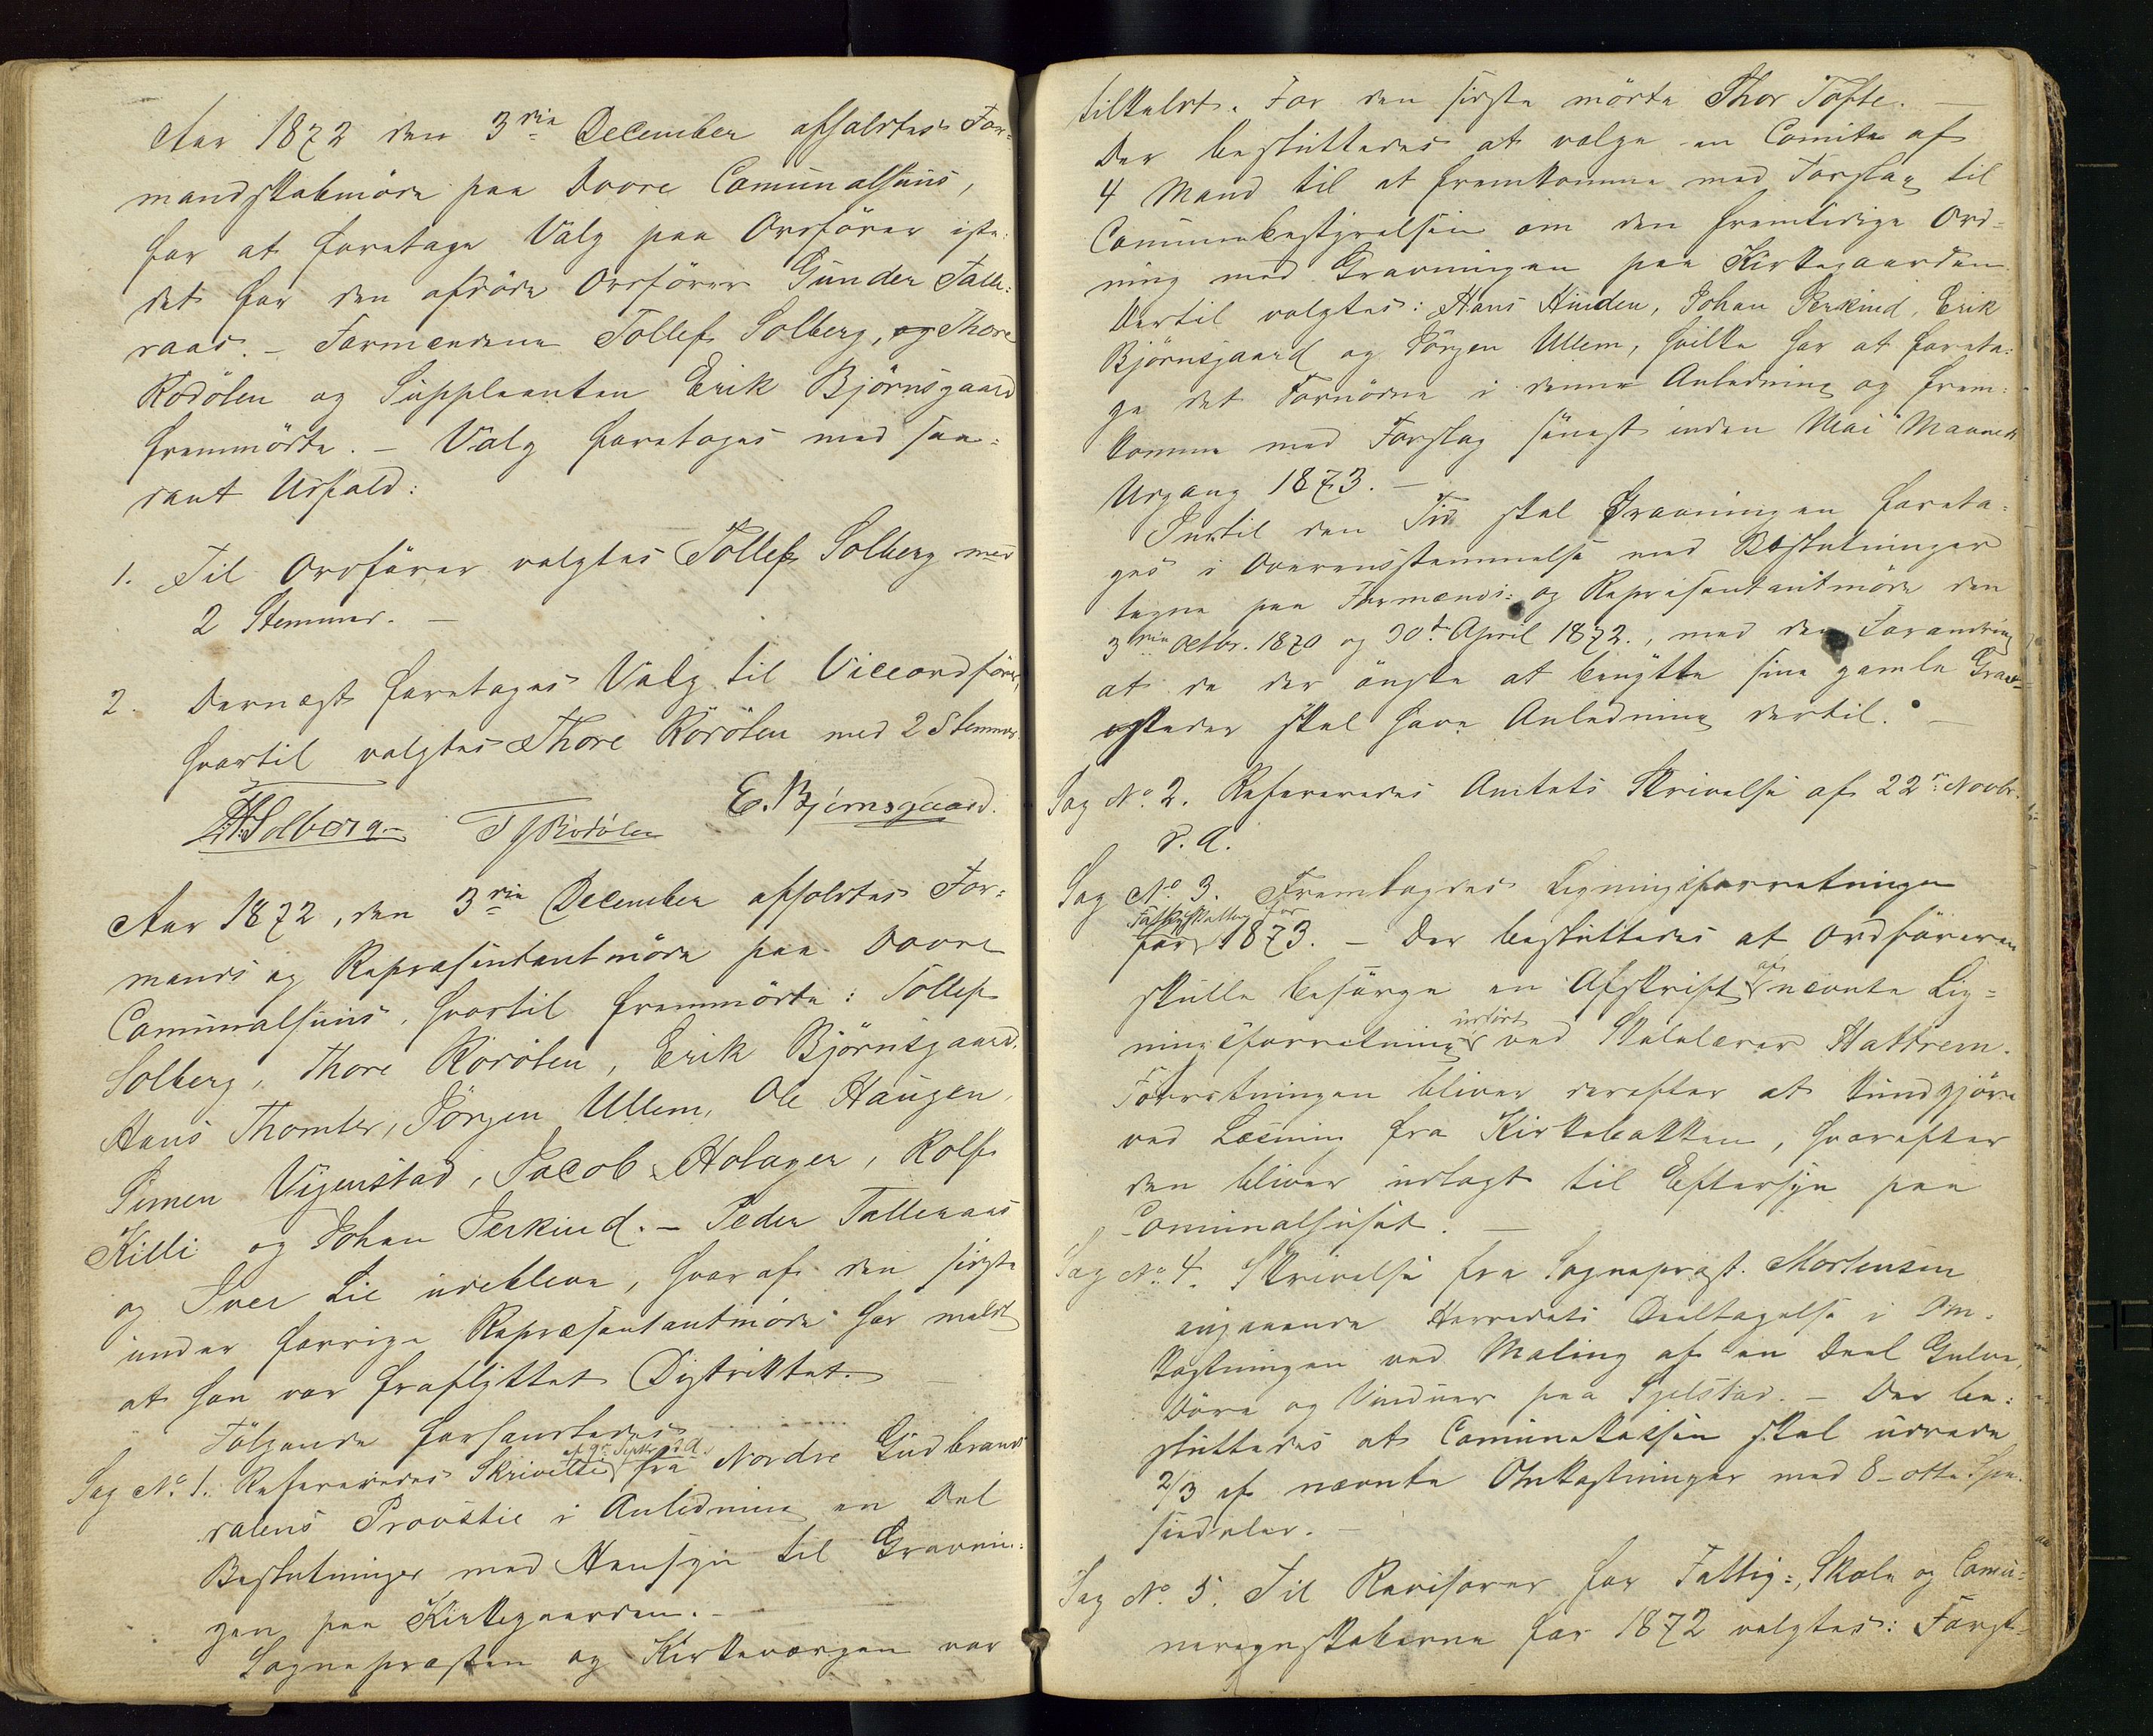 Aar 1872 den 3die December afholdtes For-
mandskabmöde paa Dovre Comunalhuus,
for at foretage Valg paa Ordförer iste-
det for den afdöde Ordförer Gunder Talle-
raas. – Formændene Tollef Solberg, og Thore
Rödölen og Suppleanten Erik Björnsgaard
fremmödte. – Valg foretoges med saa-
dant Udfald:
1. Til Ordförer valgtes Tollef Solberg med
2 Stemmer. –
2. Dernæst foretoges Valg til Viceordförer,
hvortil valgtes Thore Rödölen med 2 Stemmer
T. Solberg T J Rödölen E. Bjørnsgaard.
Aar 1872, den 3die December afholdtes For-
mands og Repræsentantmöde paa Dovre
Comunalhuus, hvortil fremmödte: Tollef
Solberg, Thore Rödölen, Erik Björnsgaard,
Hans Thomter, Jörgen Ullem, Ole Haugen,
Simen Vigenstad, Jacob Holager, Rolf
Killi og Johan Jerkind. – Peder Talleraas
og Iver Lie udebleve, hvoraf den sidste
under forrige Repræsentantmöde har meldt
at han var fraflyttet Distriktet. –
Fölgende forhandledes
Sag No. 1. Refereredes Skrivelse af 9de Septbr. d.A. fra Nordre Gudbrands-
dalens Provstie i Anledning en Del
Beslutninger med Hensyn til Gravnin-
gen paa Kirkegaarden. –
Sognepræsten og Kirkeværgen var
tilkaldt. For den sidste mödte Thor Tofte. –
Der besluttedes at vælge en Comite af
4 Mand til at fremkomme med Forslag til
Communebestyrelsen om den fremtidige Ord-
ning med Gravningen paa Kirkegaarden
Dertil valgtes: Hans Hinden, Johan Jerkind, Erik
Björnsgaard og Jörgen Ullem, hvilke har at foreta-
ge det Fornödne i denne Anledning og frem-
komme med Forslag senest inden Mai Maaneds
Udgang 1873. –
Indtil den Tid skal Gravningen foreta-
ges i Overensstemmelse med Beslutninger
tagne paa Formænds- og Repræsentantmöde den
3die Octbr. 1870 og 30te April 1872., med den Forandring
at de der önske at benytte sine gamle Grav-
steder skal have Anledning dertil. –
Sag No. 2. Refereredes Amtets Skrivelse af 22de Novbr.
d. A.
Sag No. 3. Fremlagdes Ligningsforretningen
for Fattigskatten for 1873. – Der besluttedes at Ordföreren
skulle besörge en Afskrift af nævnte Lig-
ningsforretning udfört ved Skolelærer Hattrem.
Forretningen bliver derefter at kundgjöre
ved Læsning fra Kirkebakken, hvorefter
den bliver udlagt til Eftersyn paa
Comunalhuset. –
Sag No. 4. Skrivelse fra Sognepræst. Mortensen
angaaende Herredets Deeltagelse i Om-
kostningen ved Maling af en Deel Gulve,
Döre og Vinduer paa Fjelstad. – Der be-
sluttedes at Comunekassen skal udrede
2/3 af nævnte Omkostninger med 8 – otte Spe-
siedaler. –
Sag No. 5. Til Revisorer for Fattig-, Skole og Comu-
neregnskaberne for 1872 valgtes: Forst-